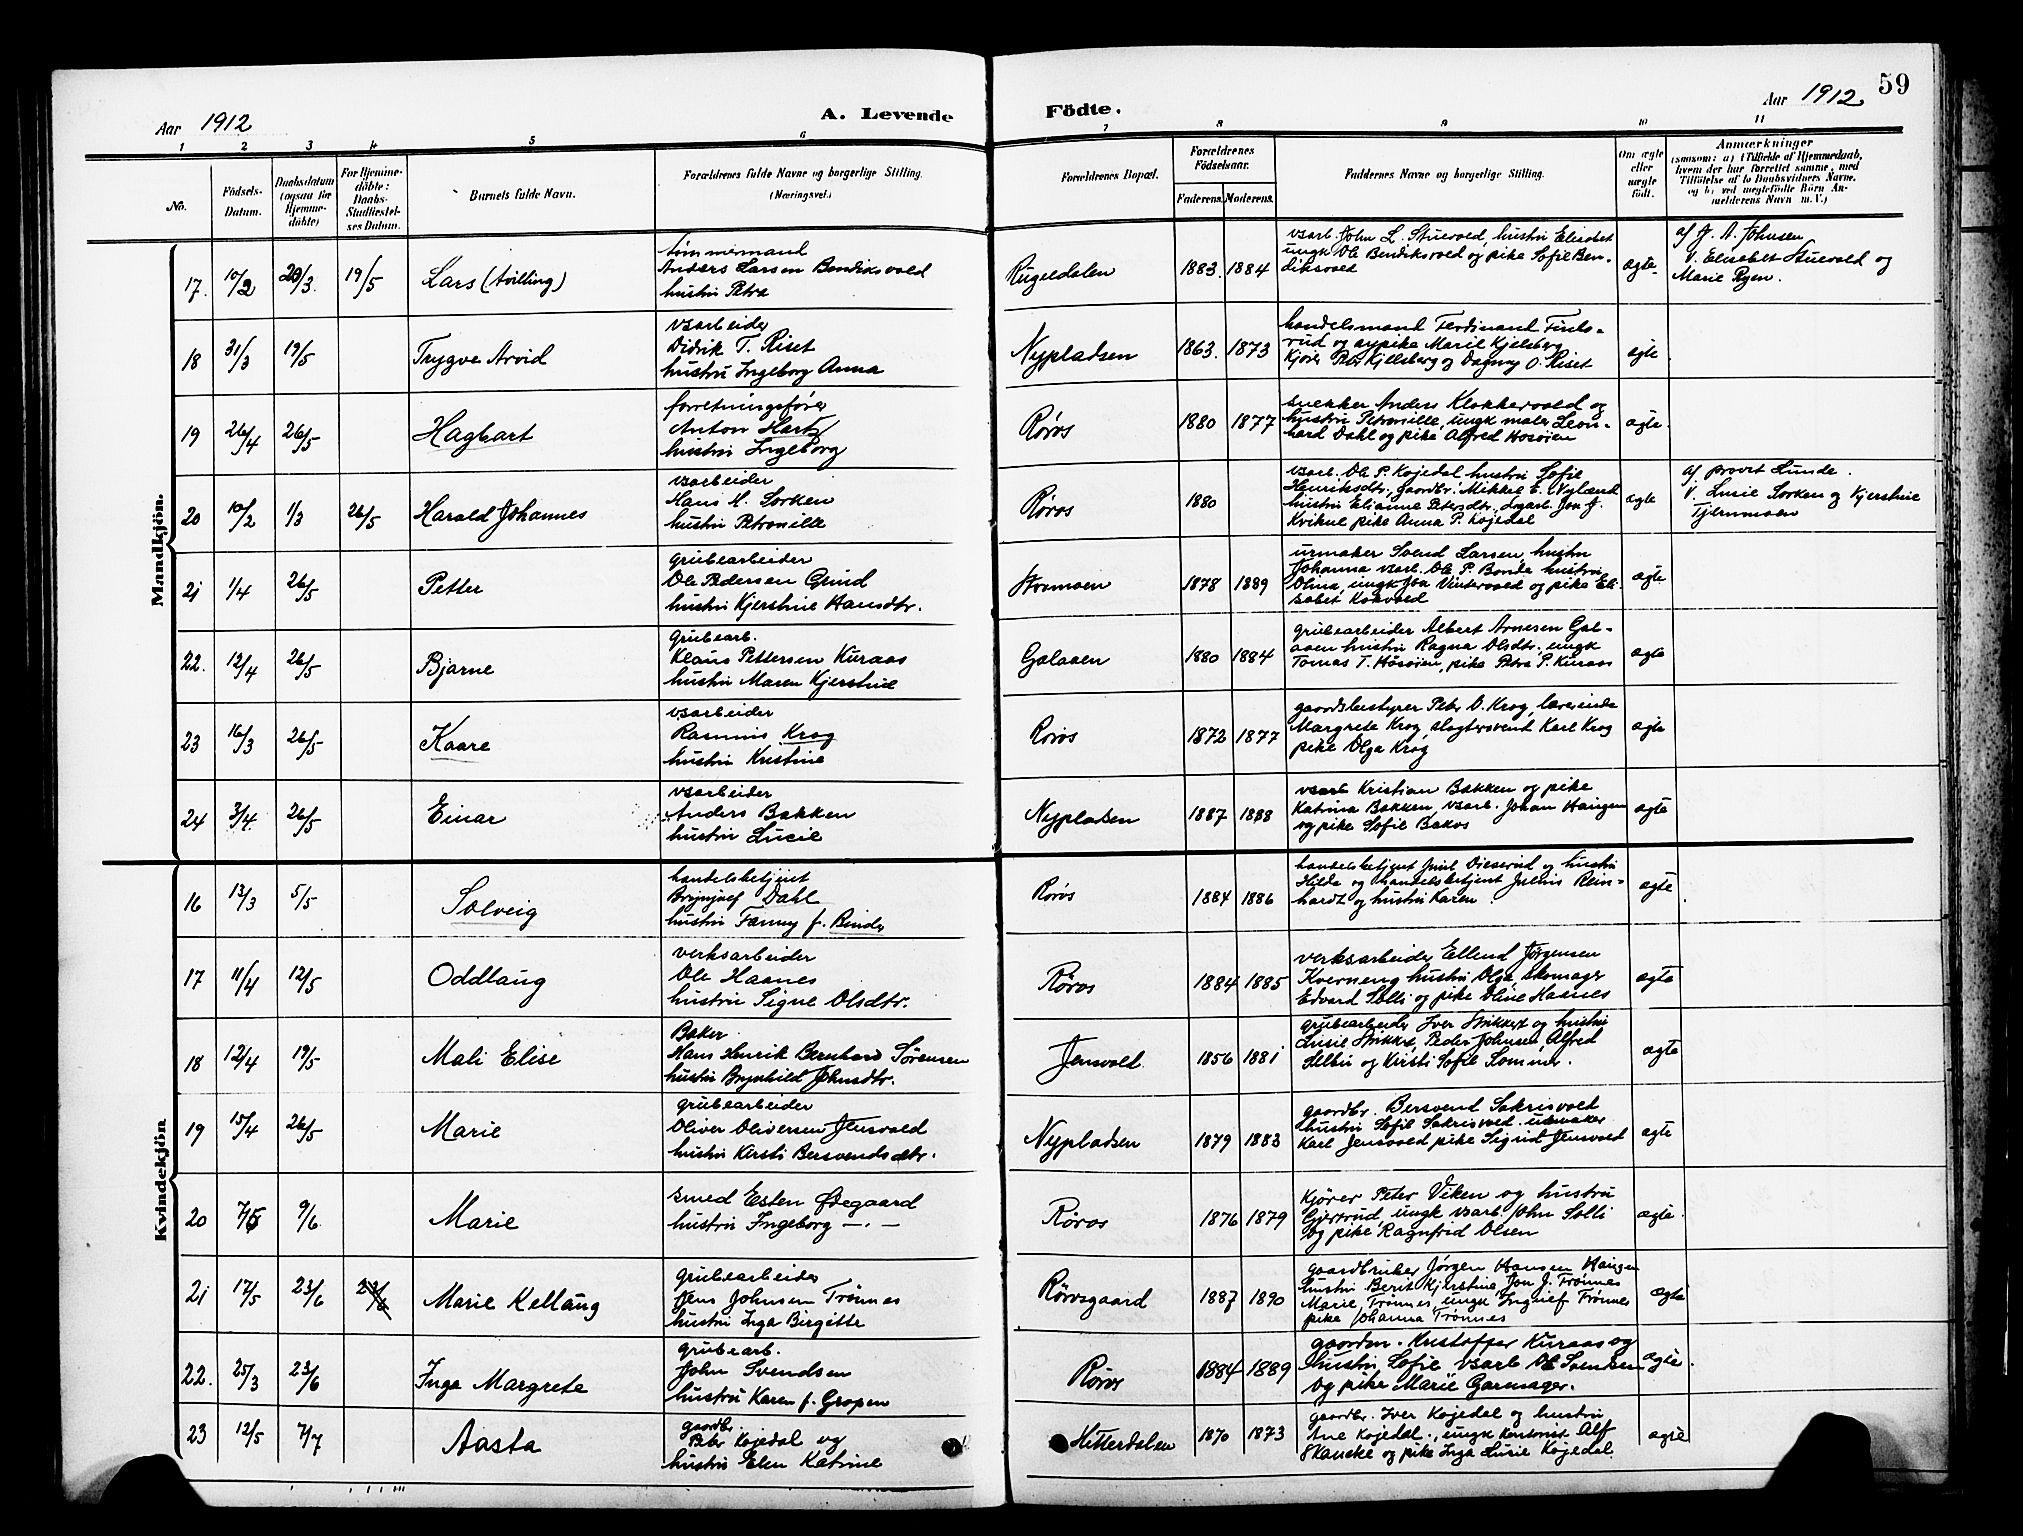 59
Aar 1912
A. Levende Födte.
Aar 1912
1 2 3 4 5 6 7 8 9 10 11
No.
Födsels-
Datum.
Daabsdatum
(ogsaa for
Hjemme-
døbte)
For Hjemme-
døbte:
Daabs-
Stadfæstel-
ses Datum.
Barnets fulde Navn.
Forældrenes fulde Navne og borgerlige Stilling.
(Næringsvei.)
Forældrenes Bopæl.
Forældrenes
Födselsaar.
Faderens. Moderens.
Faddernes Navne og borgerlige Stilling.
Om ægte
eller
uægte
født.
Anmærkninger
(saasom: a) i Tilfælde af Hjemmedaab,
hvem der har forrettet samme, med
Tilföielse af to Daabsvidners Navne,
og b) ved uægtefødte Börn An-
melderens Navn m. V.)
Mandkjön.
17. 10/2 20/3. 19/5 Lars (tvilling)
tömmermand
Anders Larsen Bendiksvold
hustru Petra
Rugeldalen 1883. 1884
vsarb. John L. Stuevold, hustru Elisabet
ungk Ole Bendiksvold og pike Sofie Ben-
diksvold
ægte.
af J. A. Johnsen
V. Elisabet Stuevold og
Marie Ryen.
18 31/3 19/5 Trygve Arvid
vsarbeider
Didrik T. Riset
hustru Ingeborg Anna
Nypladsen 1863. 1873
handelsmand Ferdinand
rud og pike Marie Kjelsberg
Kjører Peter Kjellsberg og Dagny O. Riset
ægte
19 26/4 26/5 Hagbart
forretningsfører
Anton Hartz
hustru Ingeborg
Røros 1880 1877
snekker Anders Klokkervold og
hustru Petronille, ungk maler Leon-
hard Dahl og pike Alfred Hosøien
ægte
20 10/2 1/3 26/5 Harald Johannes
vsarbeider
Hans M. Sorken
hustru Petronille
Røros 1880
vsarb. Ole P. Kojedal hustru Sofie
Henriksdtr, gaardbr. Mikkel E. Nyland
hustru Elianne Petersdtr. Jon J.
Kvikne pike Anna P. Kojedal
ægte
af provst Lunde.
V. Lusie Sorken og Kjerstine
Tjernmoen
21 1/4 26/5 Petter
grubearbeider
Ole Pedersen Grind
hustru Kjerstine Hansdtr.
Stormoen 1878 1889
urmaker Svend Larsen, hustru
Johanna vsarb. Ole P. Bonde hustru
Olina, ungk Jon Vintervold og pike Eli-
sabet Kokvold
ægte
22. 12/4 26/5 Bjarne
grubearb.
Klaus Pettersen Kuraas
hustru Maren Kjerstine
Galaaen 1880 1884
grubearbeider Albert Arnesen Gal-
aaen hustru Ragna Olsdtr. ungk
Tomas T. Hosøien, pike Petra P. Kuraas
ægte
23 16/3 26/5 Kaare
vsarbeider
Rasmus Krog
hustru Kristine
Røros 1872 1877
gaardsbestyrer Peter O. Krog, lærerinde
Margrete Krog, slagtersvend Karl Krog
pike Olga Krog
ægte
24 3/4. 26/5 Einar
vsarbeider
Anders Bakken
hustru Lucie
Nypladsen 1887 1888
vsarb Kristian Bakken og pike
Katrina Bakken, vsarb. Johan Haugen
og pike Sofie Bakos
ægte
Kvindekjön
16 13/3 5/5 Solveig
handelsbetjent
Brynjulf Dahl
hustru Fanny f. Binde
Røros 1884 1886
handelsbetjent og hustru
Hilda og handelsbetjent Julius Rein-
hardt og hustru Karen
ægte
17 11/4 12/5 Oddlaug
verksarbeider
Ole Haanes
hustru Signe Olsdtr.
Røros 1884 1885
verksarbeider Ellend Jørgensen
Kverneng hustru Olga, skomager
Edvard Solli og pike Oline Haanes
ægte
18 12/4 19/5 Mali Elise
Baker
Hans Henrik Bernhard Sørensen
hustru Brynhild Johnsdtr.
Jensvold. 1856 1881
grubearbeider Iver Stikket og hustru
Lusie Stikket, Peder Johnsen, Alfred
og Kirsti Sofie Sommer.
ægte
19 15/4 26/5 Marie
grubearbeider
Oliver Oliversen Jensvold
hustru Kirsti Bersvendsdtr.
Nypladsen 1879 1883
gaardbr. Bersvend Sakrisvold
hustru Sofie Sakrisvold. urmaker
Karl Jensvold pike Sigrid Jensvold
ægte
20 7/5 9/6 Marie
smed Esten Ødegaard
hustru Ingeborg —.—
Røros 1876 1879
Kjører Peter Viken og hustru
Gjertrud, ungk vsarb. John Solli
og pike Ragnfrid Olsen
ægte.
21 17/5 23/6 23/6 Marie Kellaug
grubearbeider
Jens Johnsen Trønnes
hustru Inga Birgitte
Rørosgaard 1887 1890
gaardbruker Jørgen Hansen Haugen
hustru Berit Kjerstine, Jon J. Trønnes
Marie Trønnes, ungk Ingulf Trønnes
pike Johanna Trønnes
ægte
22. 25/3 23/6 Inga Margrete
grubearb.
John Svendsen
hustru Karen f. Gropen
Røros 1884 1889
gaardm. Kristoffer Kuraas og
hustru Sofie vsarb Ole Svendsen
og pike Marie Garmager.
ægte.
23 12/5 7/7 Aasta
gaardbr.
Peter Kojedal og
hustru Elen Katrine
Hitterdalen 1870 1873
gaardbr. Iver Kojedal og hustru
Ane Kojedal., ungk kontorist Alf
Skancke og pike Inga Lusie Kojedal.
ægte